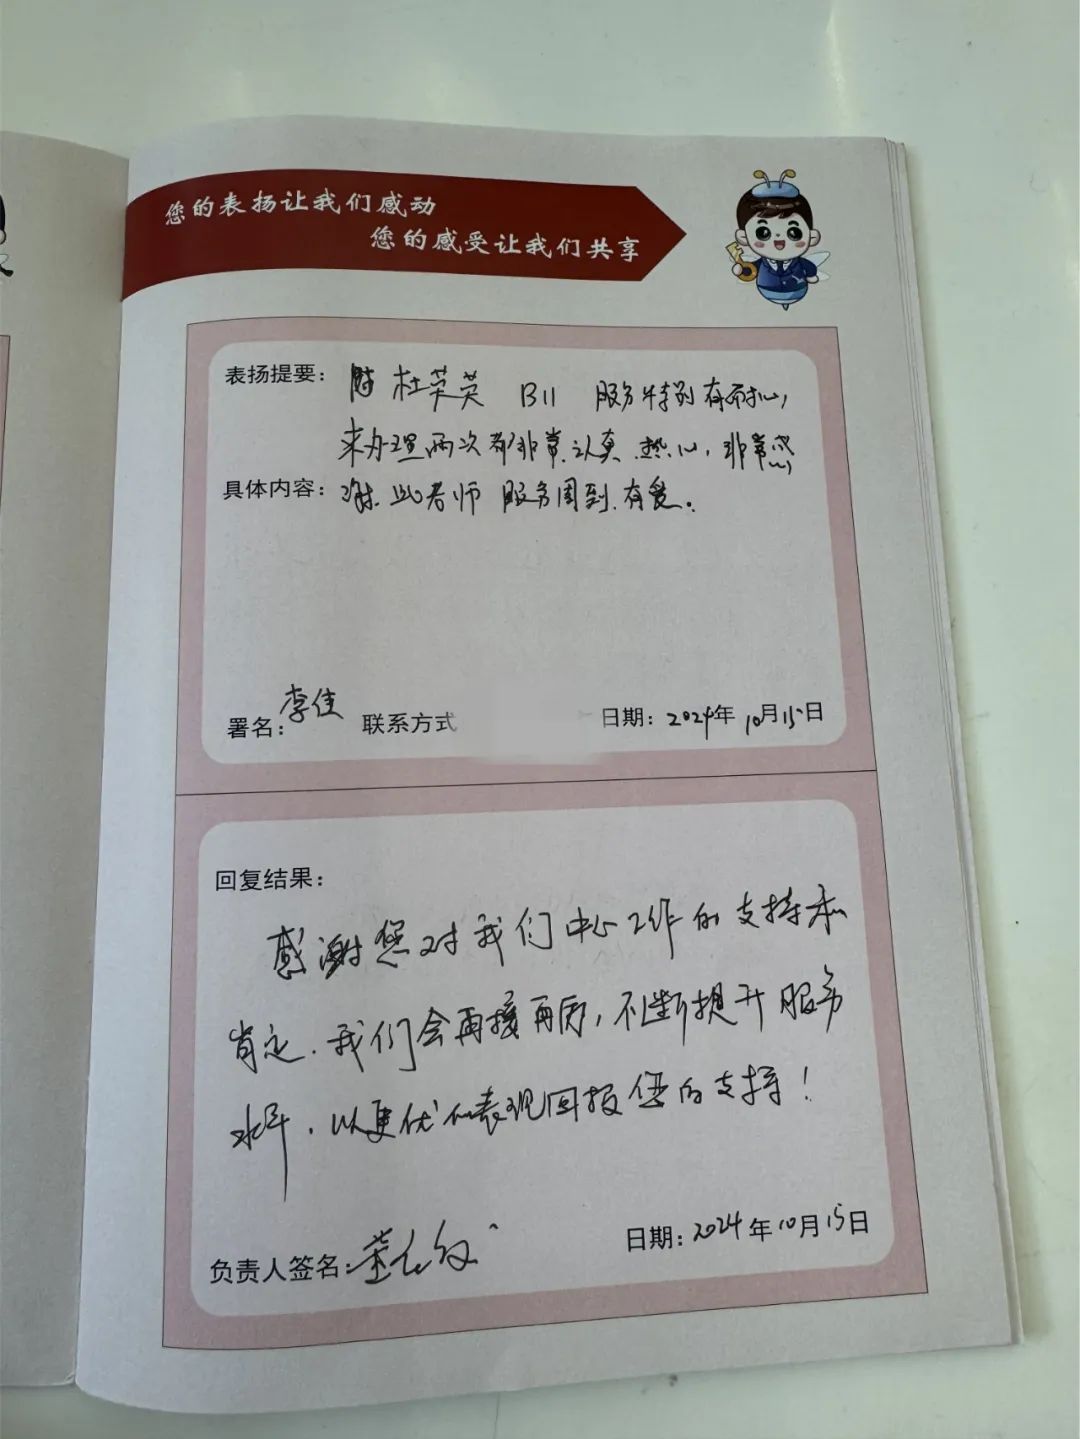 您的表扬让我们感动
您的感受让我们共享
表扬提要： 杜荣英 B11 服务特别有耐心，
来办理两次都非常认真.热心，非常感
具体内容：谢.此老师 服务周到.有爱。
署名：李佳 联系方式 日期：2024年10月15日
回复结果：
感谢您对我们中心工作的支持和
肯定.我们会再接再厉，不断提升服务
水平.以更优的表现回报您的支持！
负责人签名： 日期：2024年10月15日